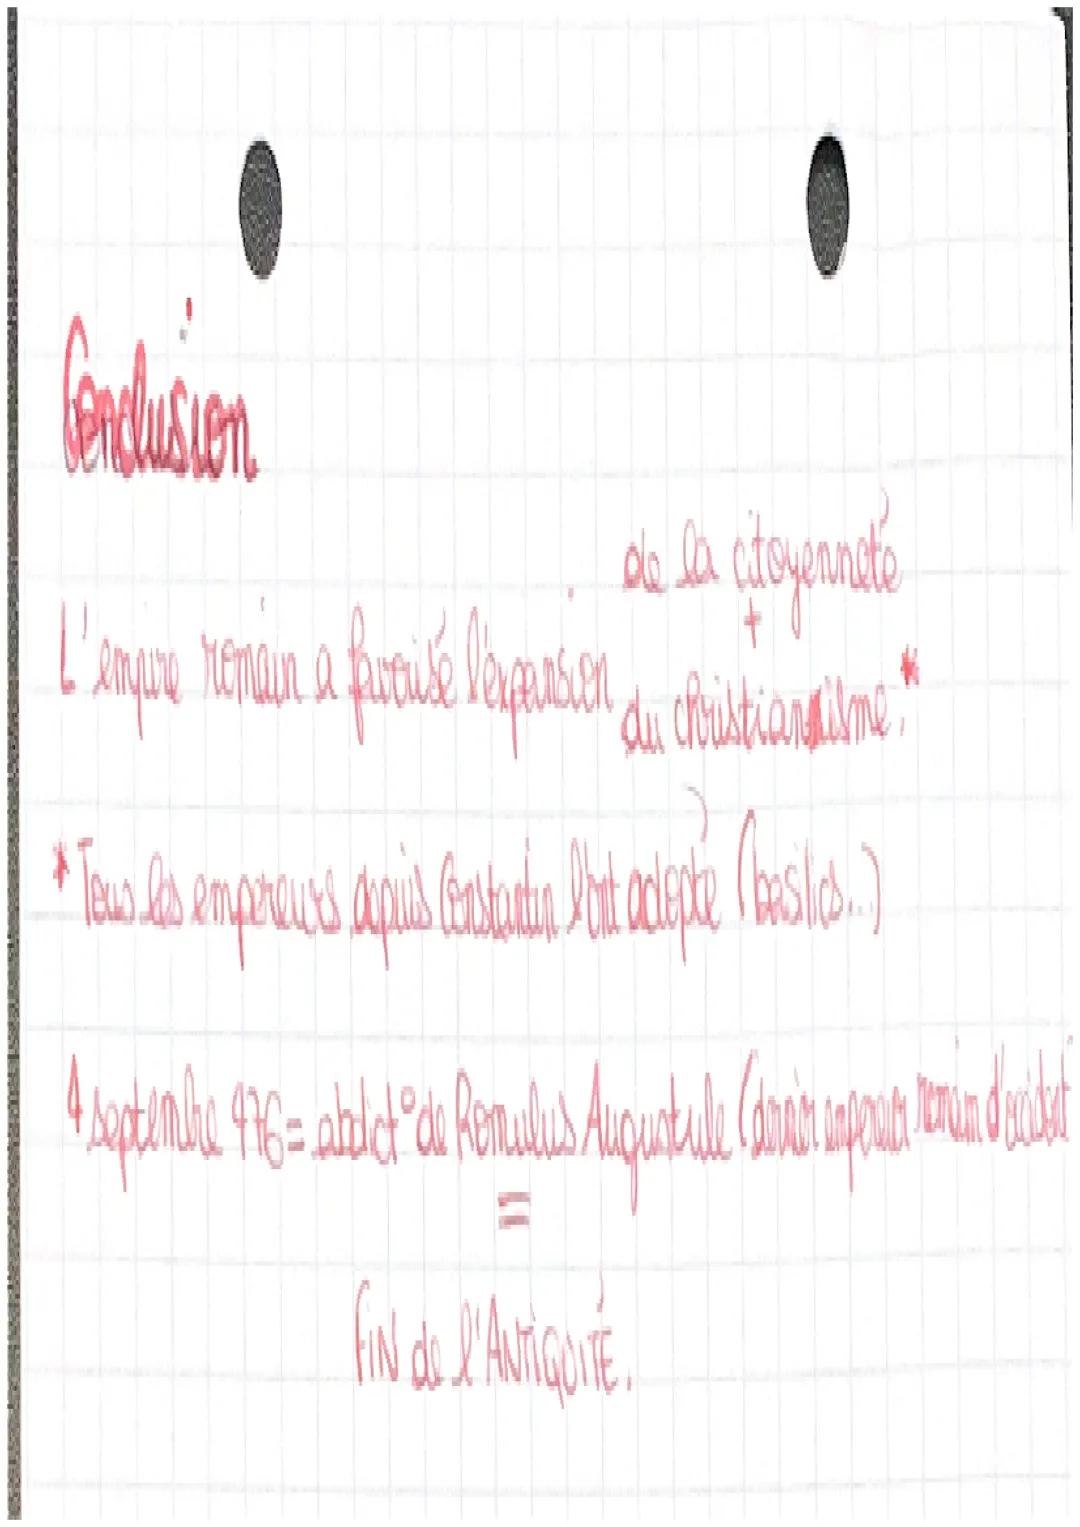 Conclusion
de la citoyenneté
+
L'empire romain a favorisé l'expansion
du christiannisme.*
* Tous les empereurs depuis Constantin l'ont adopté (basilics...)
4 septembre 476 = abdict° de Romulus Augustule (dernier empereur romain d'occident
=
FIN de l'ANTIQUITÉ.